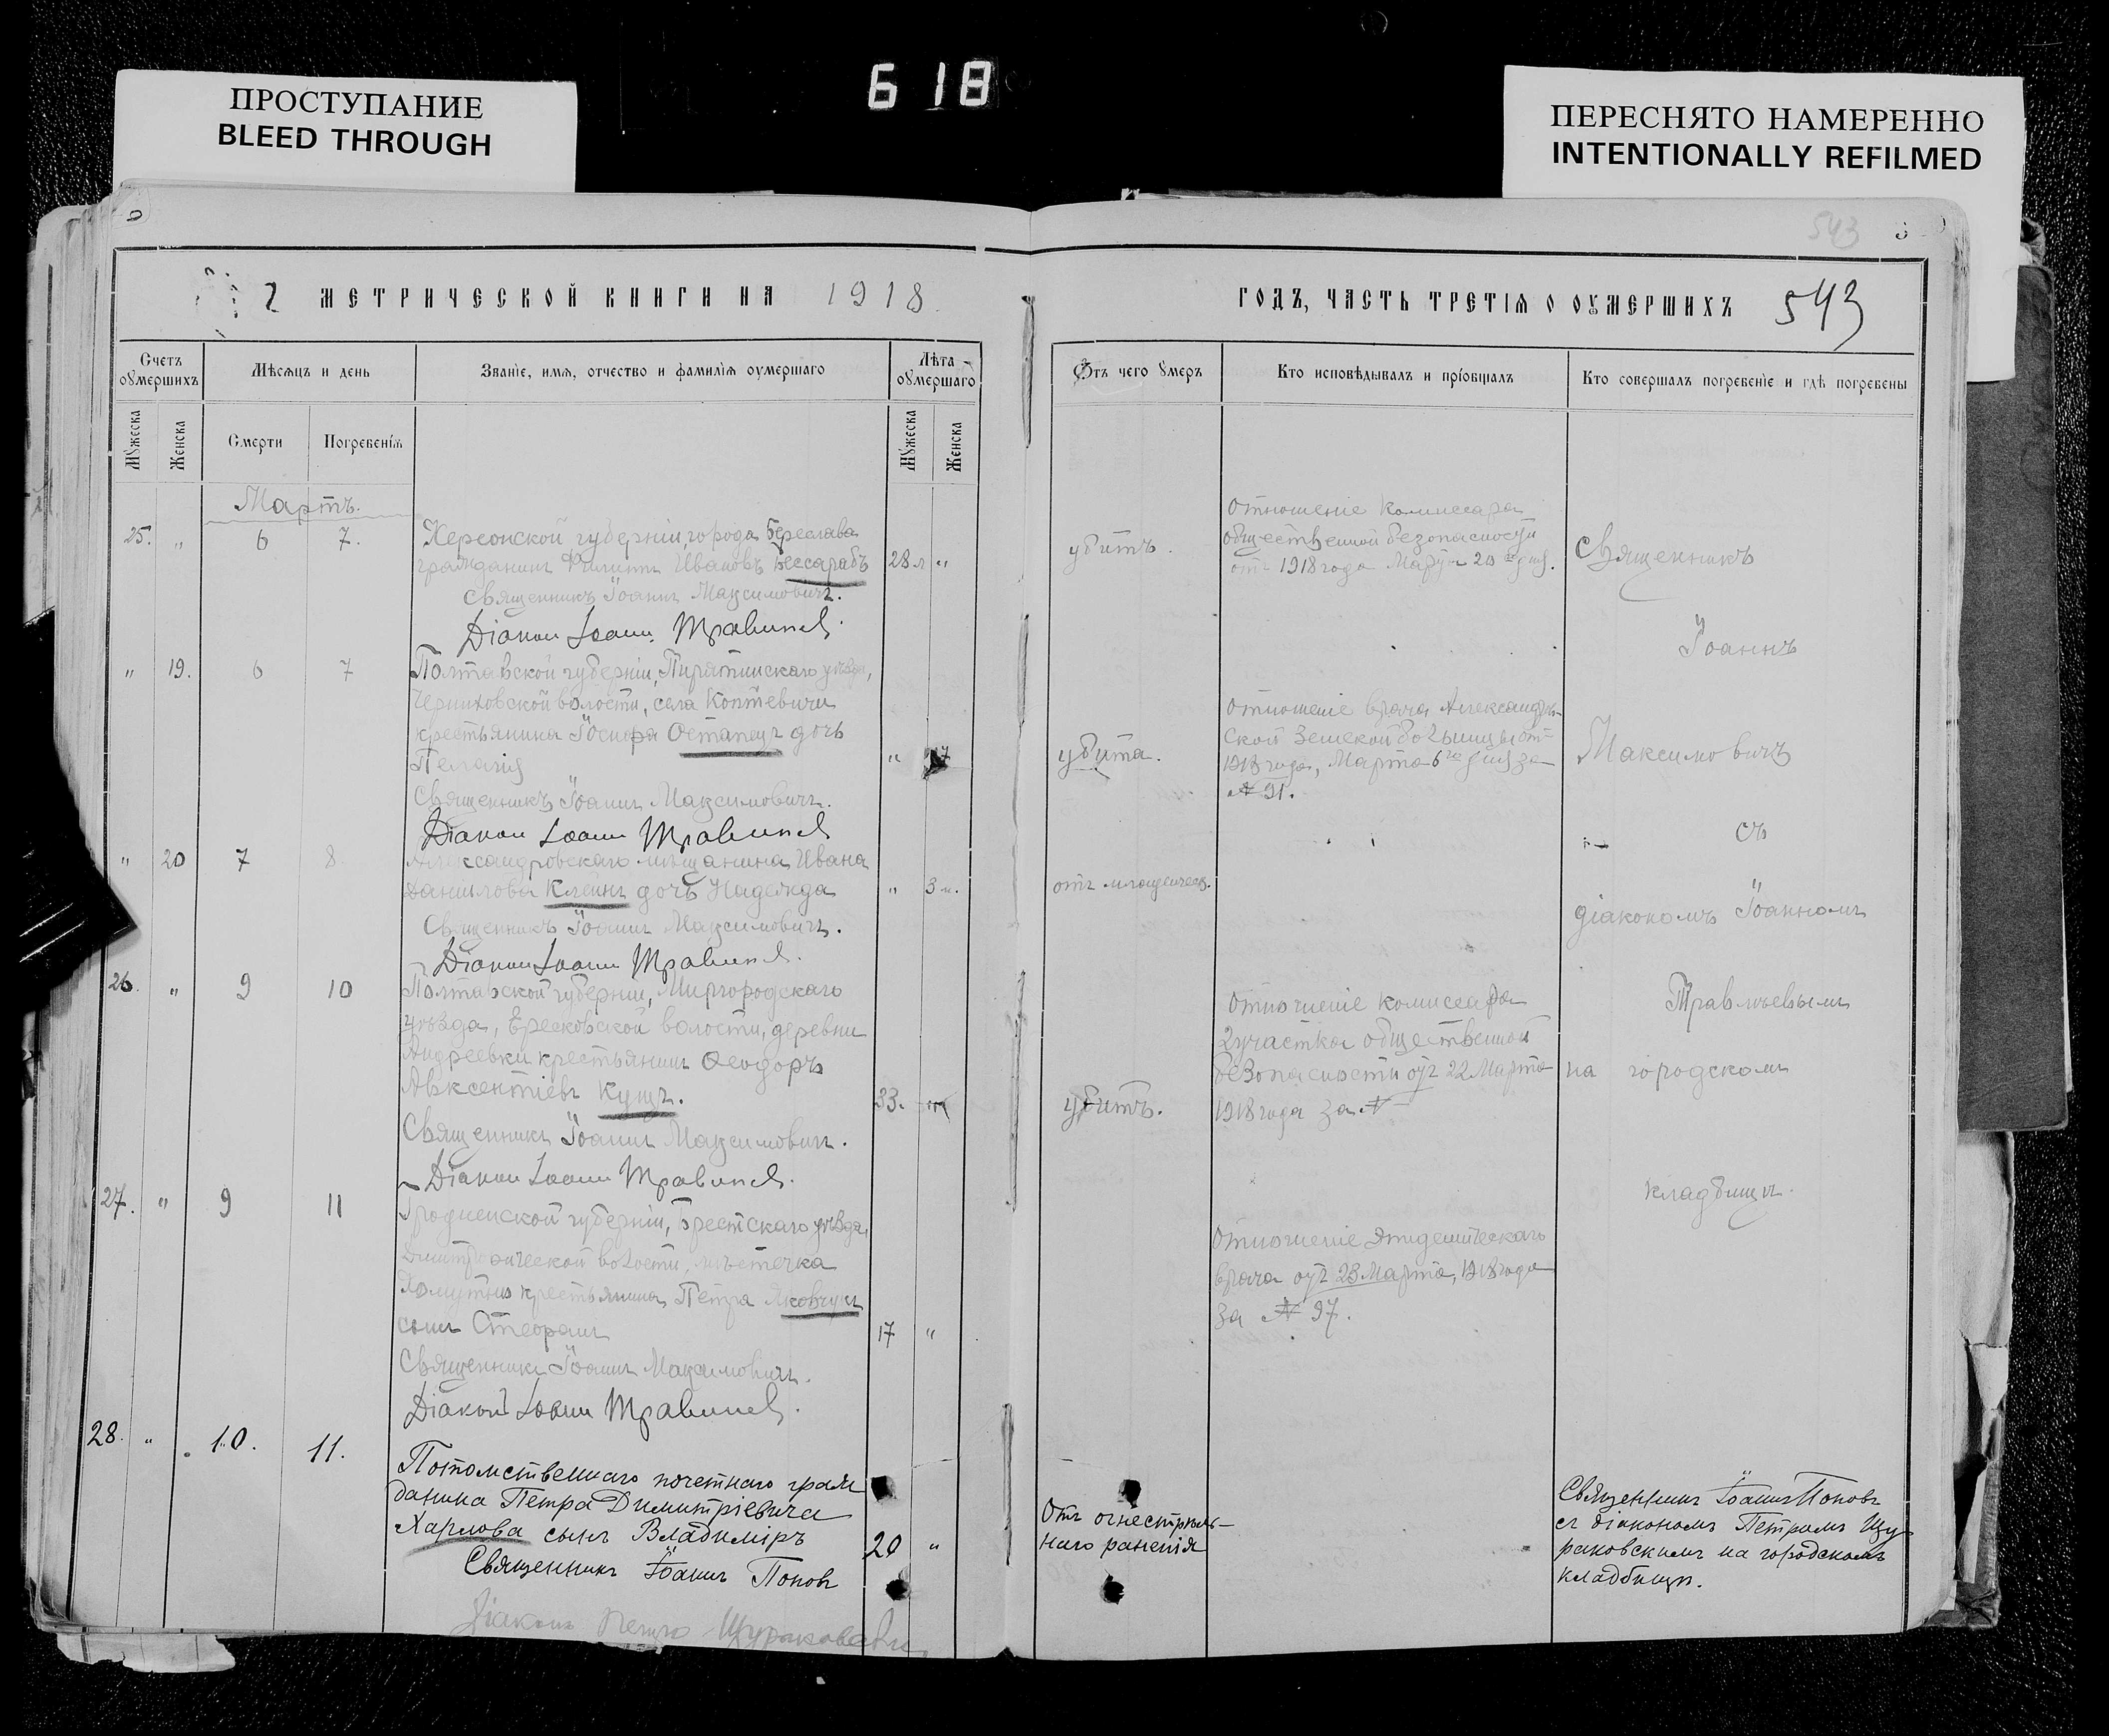 618
ПРОСТУПАНИЕ
BLEED THROUGH
ПЕРЕСНЯТО НАМЕРЕННО
INTENTIONALLY REFILMED
543
МЕТРИЧЕСКОЙ КНИГИ НА 1918
ГОДЪ, ЧАСТЬ ТРЕТІЯ О ОУМЕРШИХЪ 543
Счетъ оумершихъ
Мѣсяцъ и день
Званіе, имя, отчество и фамилія оумершаго
Лѣта оумершаго
Отъ чего умеръ
Кто исповѣдывалъ и пріобщалъ
Кто совершалъ погребеніе и гдѣ погребены
Мужеска
Женска
Смерти
Погребенія
Мужеска
Женска
Мартъ.
25. " 6 7.
Херсонской губерніи, города Береслава
гражданинъ Филиппъ Ивановъ Бессарабъ
28 л "
Священникъ Іоаннъ Максимовичъ.
Діаконъ Іоаннъ
убитъ.
Отношеніе Комиссара
общественной безопасности
отъ 1918 года Марта 20 дня.
Священникъ
Іоаннъ
" 19. 6 7
Полтавской губерніи, Пирятинскаго уѣзда,
волости, села
крестьянина Іосифа Остапецъ дочь
Пелагія
" 17
Священникъ Іоаннъ Максимовичъ.
Діаконъ Іоаннъ
убита.
Отношеніе врача Александров-
ской Земской больницы отъ
1918 года, Марта 6го дня за
№ 91.
Максимовичъ
съ
" 20 7 8
Александровскаго мѣщанина Ивана
Данилова Клейнъ дочь Надежда
" 3 м.
Священникъ Іоаннъ Максимовичъ.
Діаконъ Іоаннъ
отъ младенческ.
діакономъ Іоанномъ
26. " 9 10
Полтавской губерніи, Миргородскаго
уѣзда, Ересковской волости, деревни
Андреевки крестьянинъ Ѳеодоръ
Авксентіевъ Кущъ.
33.
Священникъ Іоаннъ Максимовичъ.
Діаконъ Іоаннъ
убитъ.
Отношеніе комиссара
2 участка общественной
безопасности отъ 22 Марта
1918 года за №
на городскомъ
27. " 9 11
Гродненской губерніи, Брестскаго уѣзда,
волости, мѣстечка
крестьянина Петра Яковчукъ
сынъ Стефанъ
17 "
Священникъ Іоаннъ Максимовичъ.
Діаконъ Іоаннъ
Отношеніе Эпидемическаго
врача отъ 23 Марта, 1918 года
за № 97.
кладбищѣ.
28. " 10. 11.
Потомственнаго почетнаго граж
данина Петра Димитріевича
Харлова сынъ Владиміръ
20 "
Священникъ Іоаннъ Поповъ
Діаконъ Петръ Щураковскій
Отъ огнестрѣль-
наго раненія
Священникъ Іоаннъ Поповъ
съ діакономъ Петромъ Щу-
раковскимъ на городскомъ
кладбищѣ.